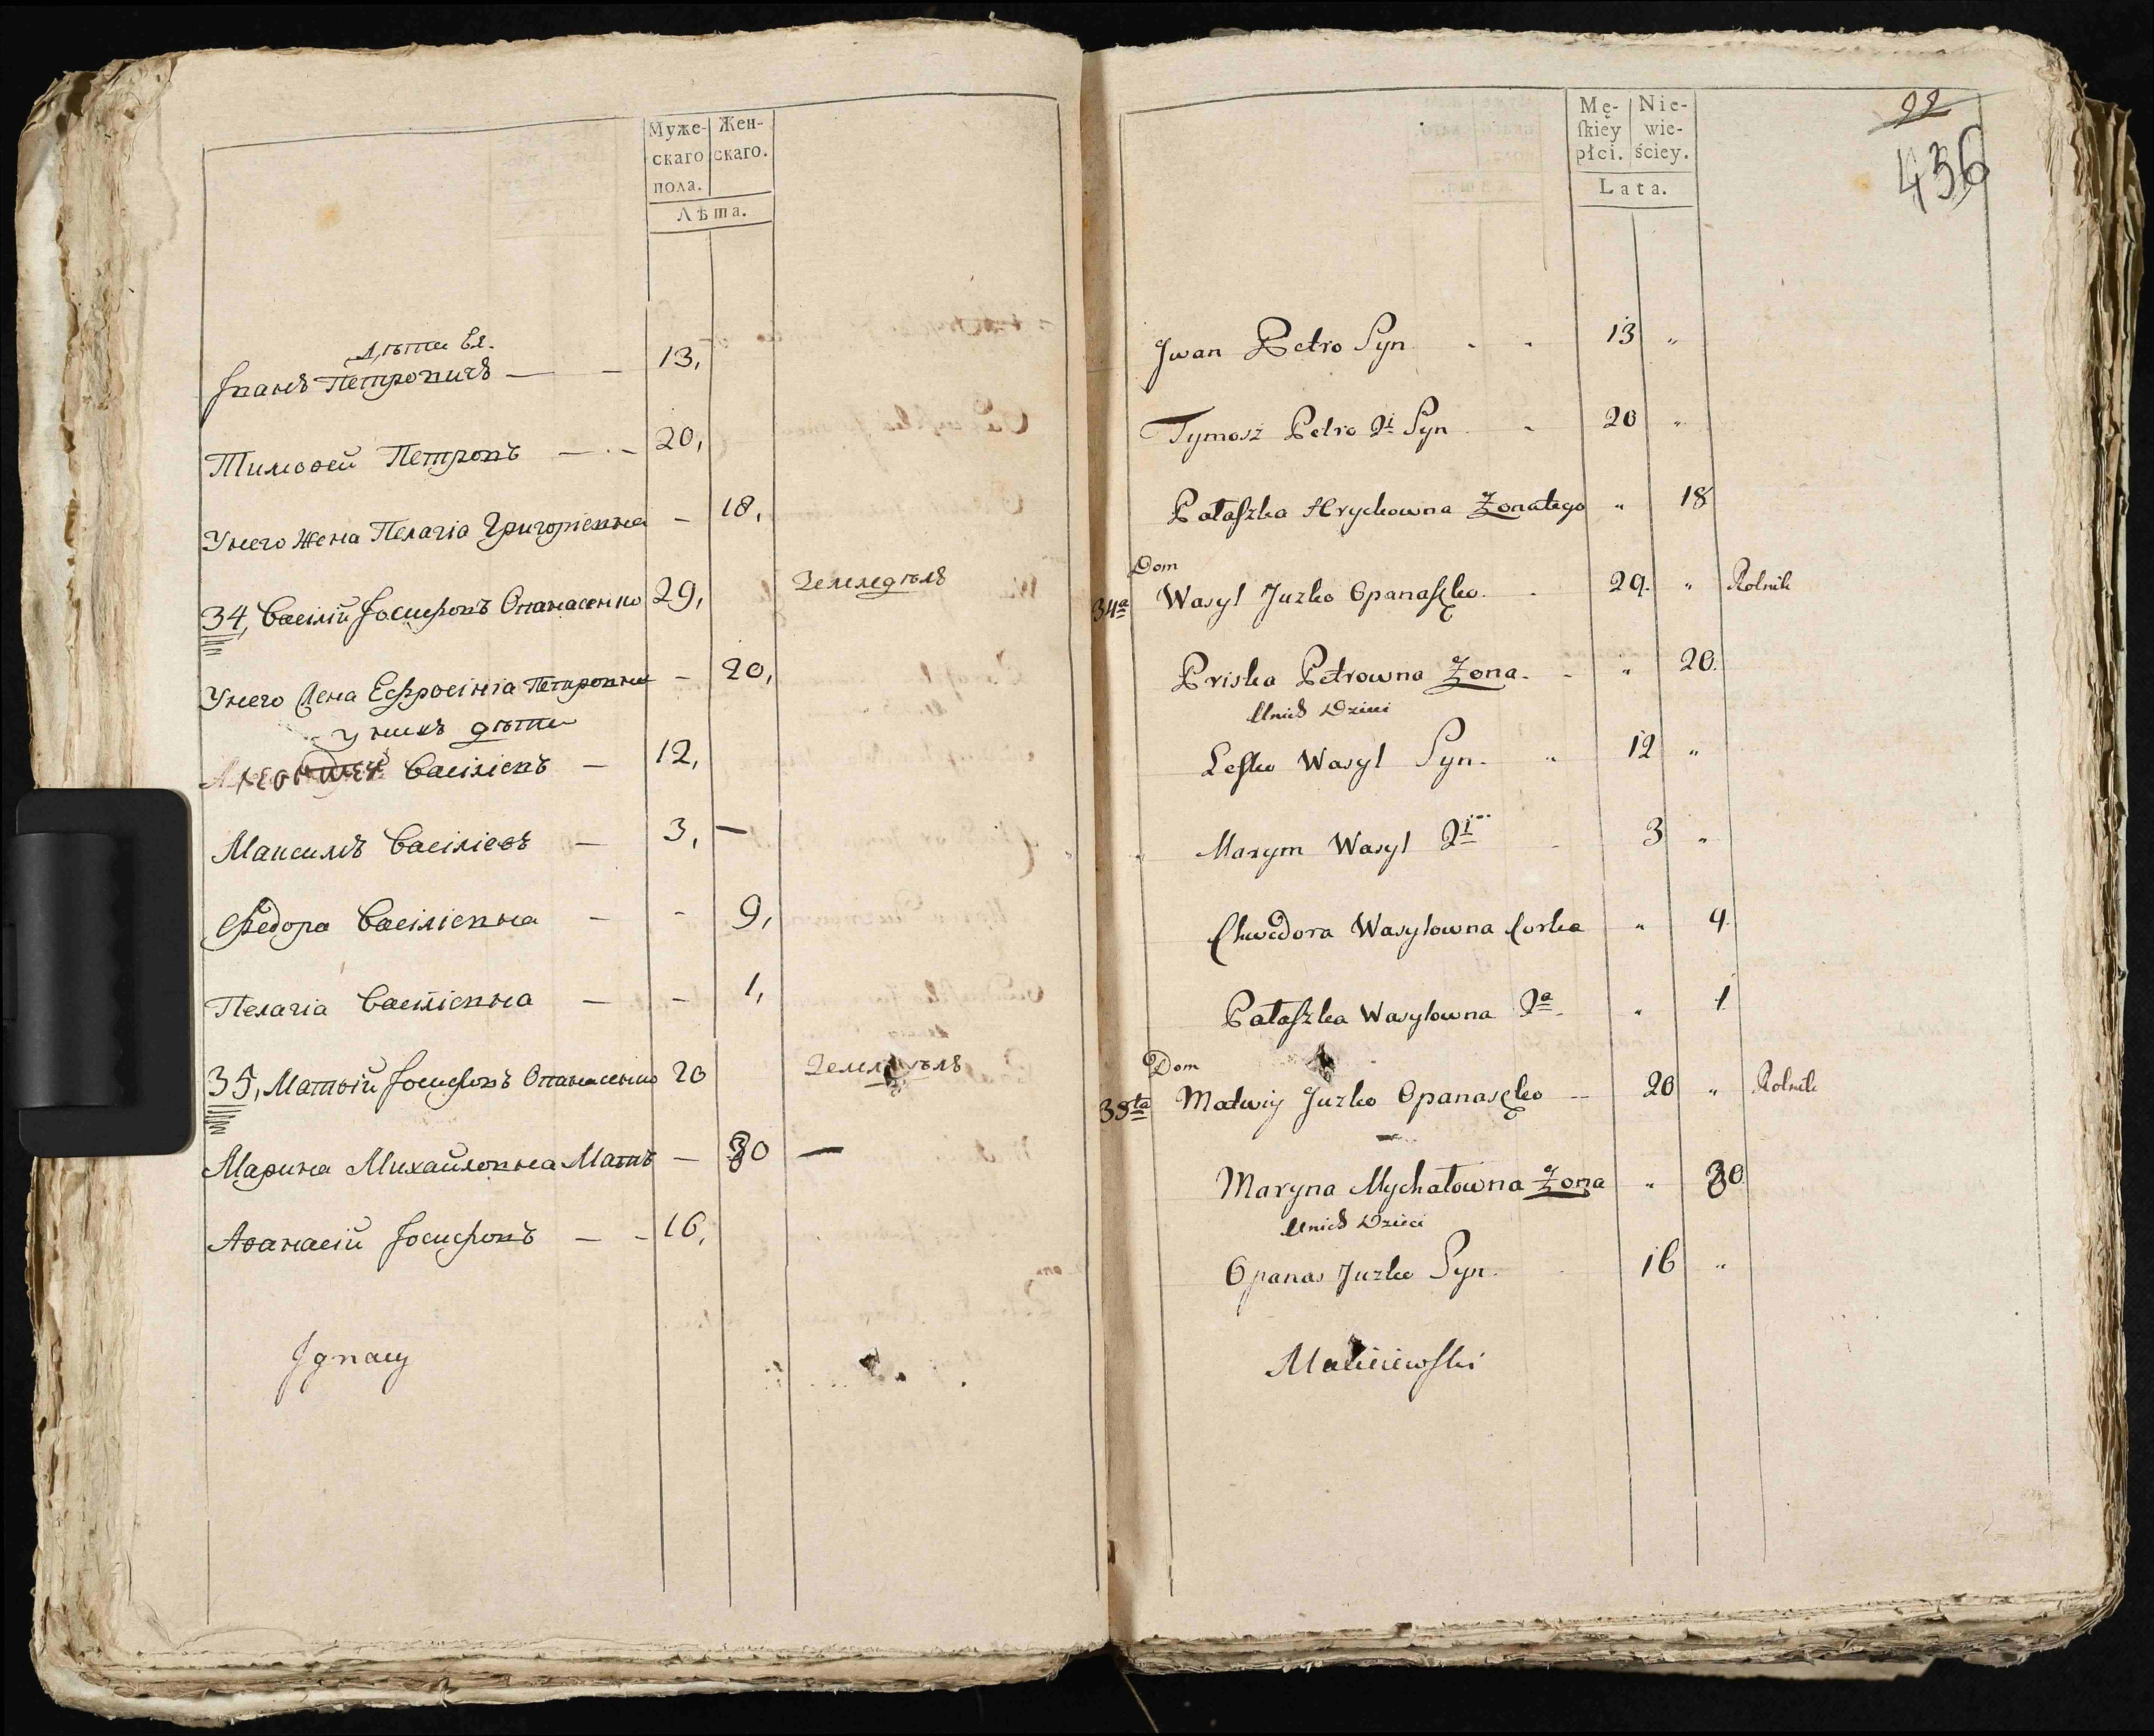 Муже- Жен-
скаго скаго.
пола.
Лѣта.
дѣти ея.
Іванъ Петровичъ — - 13,
Тимоѳей Петровъ — - - 20,
Унего Жена Пелагіа Григоріевна - 18,
34, Василій Іосифовъ Опанасенко 29, Земледѣлъ
Унего Жена Ефросиніа Петровна - 20,
у нихъ дѣти
Василіевъ — 12,
Максимъ Василіевъ — 3, —
Федора Василіевна — - 9,
Пелагіа Василіевна — - 1,
35, Матвій Іосифовъ Опанасенко 20 Земледѣлъ
Марина Михайловна Мать — 30 —
Аѳанасій Іосифовъ — - 16,
Ignacy
Mę- Nie-
skiey wie-
płci. ściey.
Lata.
22
436
Jwan Petro Syn - - 13 "
Tymosz Petro 2i Syn - 20 "
Pałaszka Hrychowna Żonatego " 18
Dom
34a Wasyl Juzko Opanasęko - 29. " Rolnik
Priska Petrowna Żona - - " 20.
Unich Dzieci
Lesko Wasyl Syn - " 12 "
Maxym Wasyl 2i - 3 "
Chwedora Wasylowna Corka " 9.
Pałaszka Wasylowna 2a - " 1
Dom
35ta Matwiy Juzko Opanasęko -- 20 " Rolnik
Maryna Mychałowna Żona " 30
Unich Dzieci
Opanas Juzko Syn - 16 "
Maciejewski